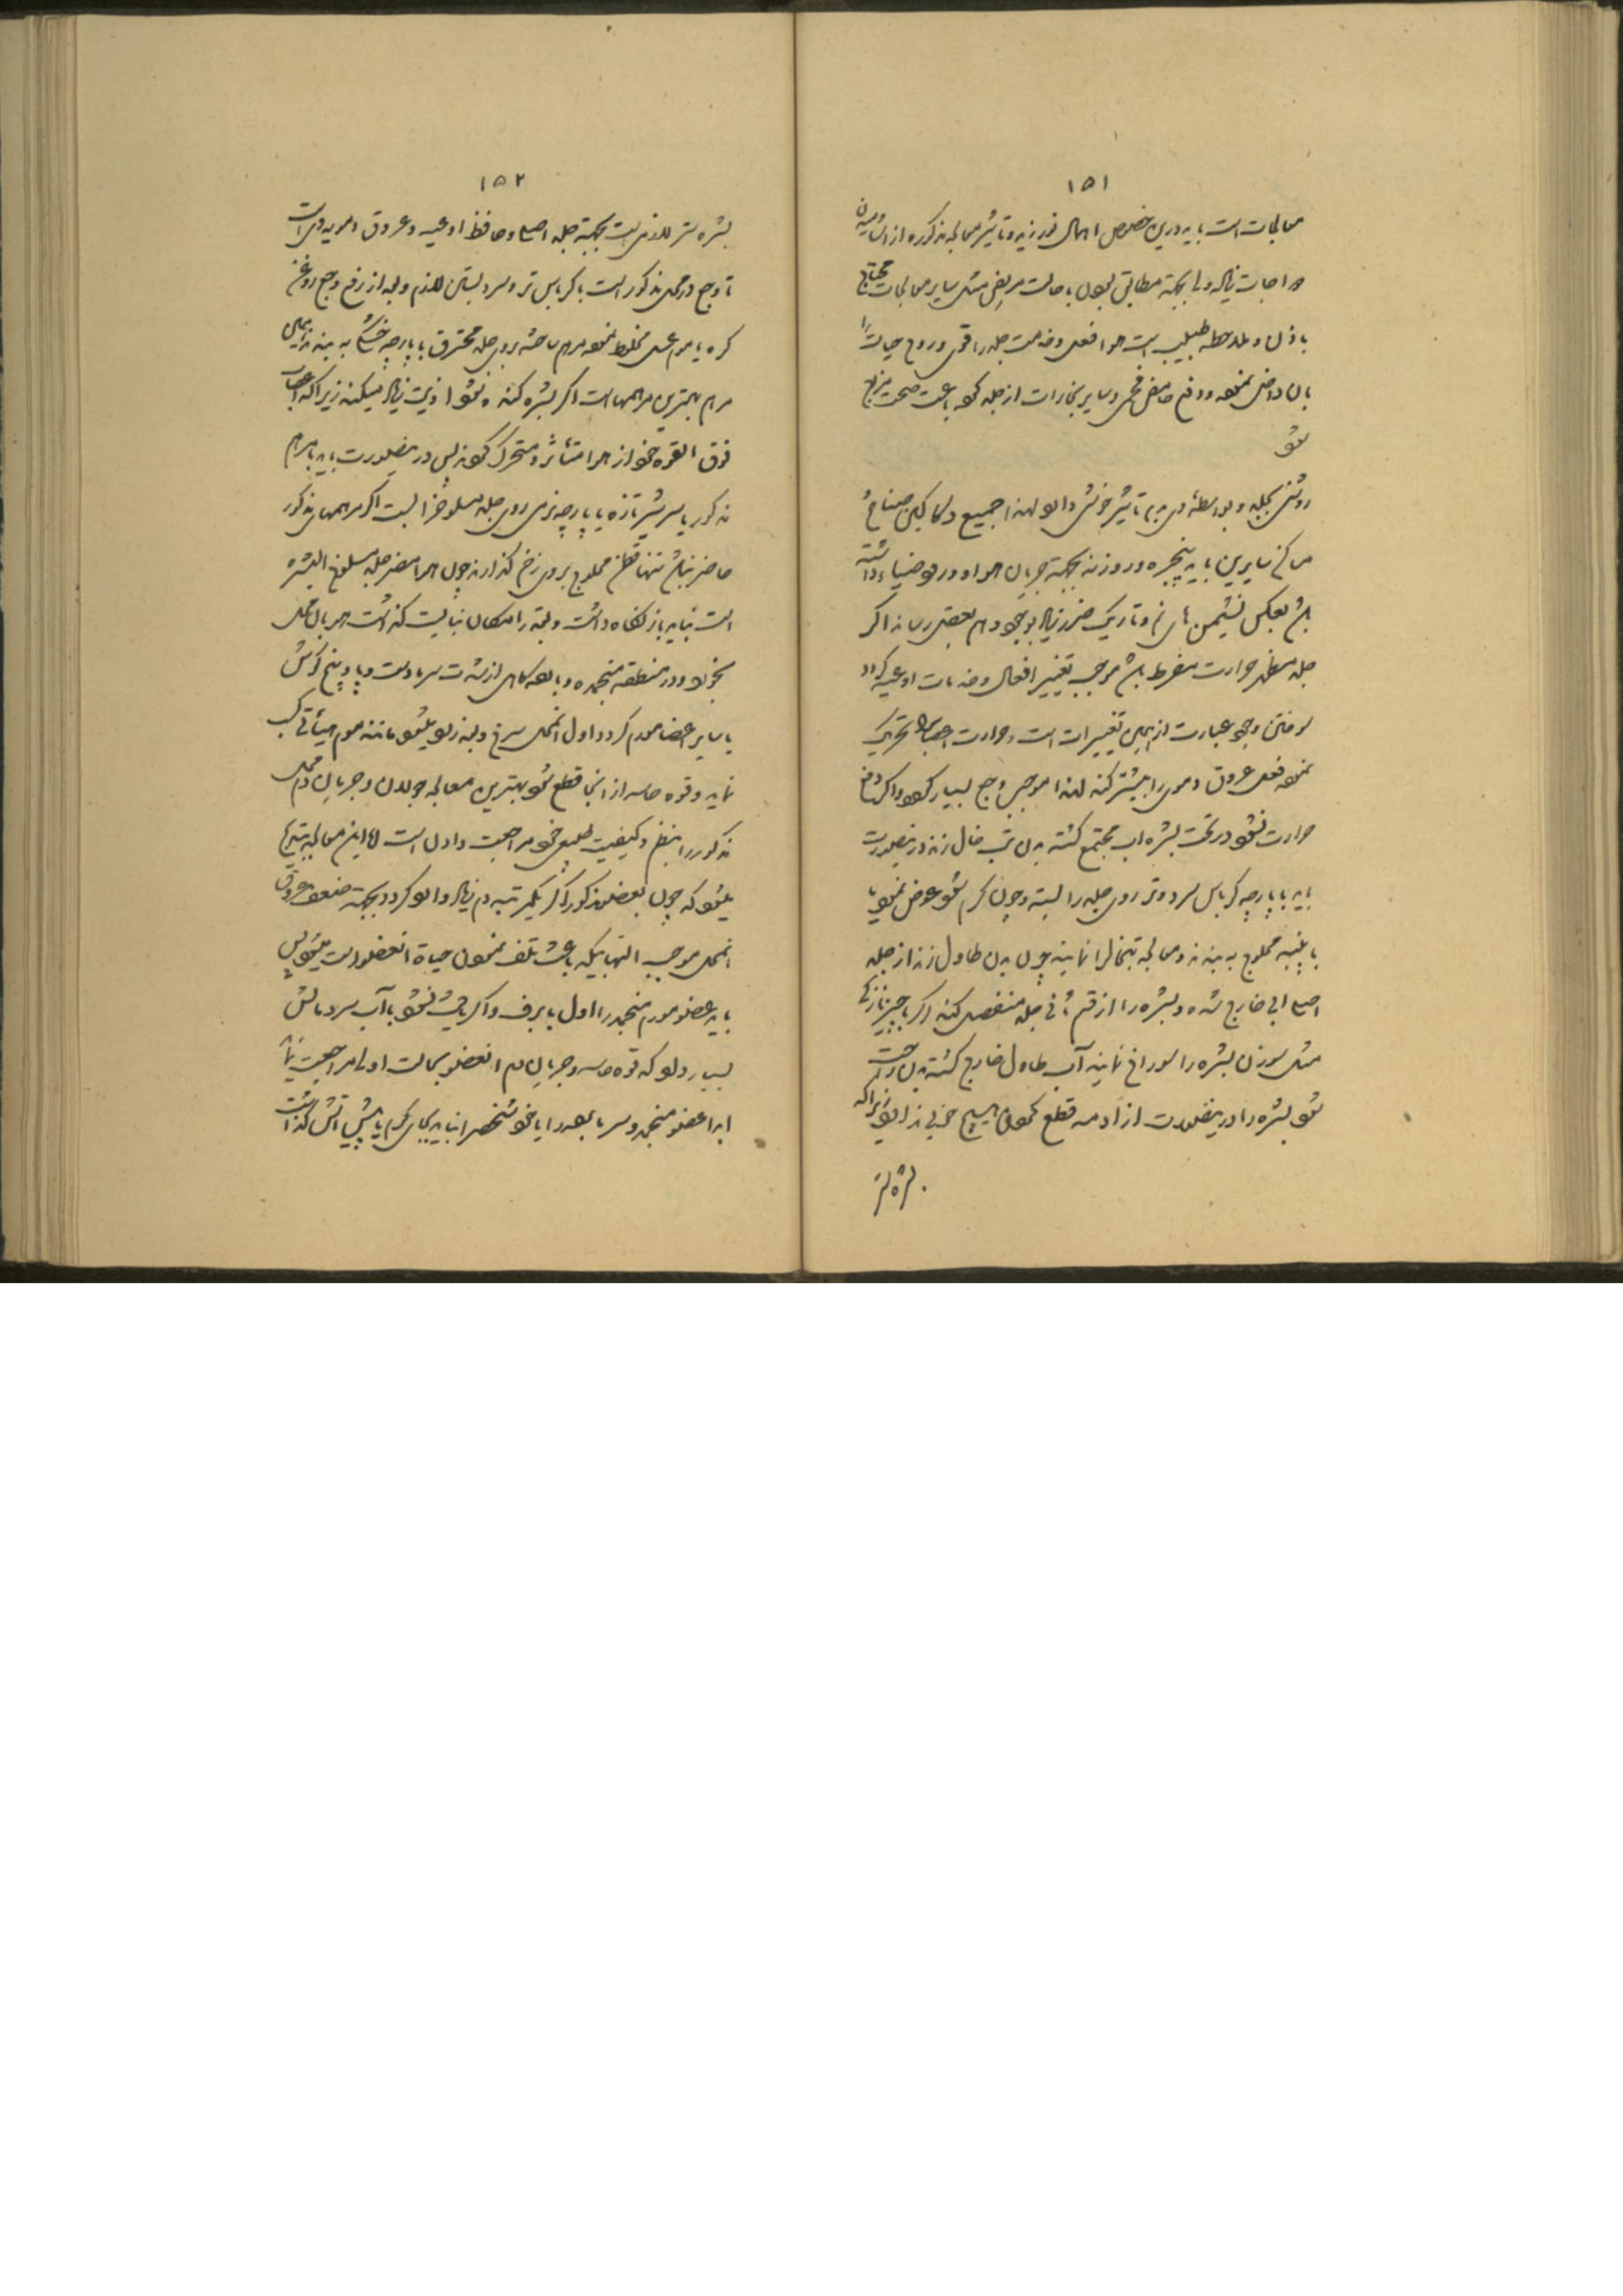 ۱۵۱
معالجات است باید درین خصوص اهمال نورزید و تاثیر معالجه مذکوره از
و اجابت زیاد ولی بجهته مطابق بودن با حالت مریض مثل سایر معالجات محتاج
باذن و ملاحظه طبیب است هوا فعل و خدمت جلد را قوی و روح حیات را
بان داخل نموده و دفع حامض فحمی و سایر بخارات از جلد کند باعث صحت مزاج
شود
روشنی بجلد و بواسطه وی به تاثیر خوش دارد لهذا جمیع
مساکن سایرین باید پنجره و روزنه بجهته جریان هوا و ورود ضیاء داشته
باشد بعکس نشیمن های نم و تاریک ضرر زیاد بوجود هم بعضی رساند اگر
جلد مظهر حرارت مفرط باشد موجب تغییر افعال و خدمات اوعیه گردد
سوختن وجود عبارت از همین تغییرات است و حرارت اعصاب را تحریک
نموده فعل عروق دموی را بیشتر کند لهذا موجب وجع بسیار گردد و اگر دفع
حرارت نشود در تحت بشره آب مجتمع گشته بدن تب خال زند در ینصورت
باید با پارچه کرباس سرد و تر روی جلد را بسته و چون گرم شود عوض نمود یا
با پنبه محلوج به بندند و معالجه تبخال را نمایند چون بدن طاول زند از جلد
اصلی آبی خارج شده و بشره را از قسم ثانی جلد منفصل کند اگر با چیز نازکی
مثل سوزن بشره را سوراخ نمایند آب طاول خارج گشته بدن راحت
شود بشره را در ینصورت از ادمه قطع نمودن هیچ خوبی ندارد زیراکه
۱۵۲
بشره ستر لازمی است بجهته جلد اصلی و حافظ اوعیه و عروق دمویه وی است
تا وجع در محل مذکور است با کرباس تر و سرد بستن لازم و بعد از رفع وجع روغن
کره یا موم عسل مخلوط نموده مرهم ساخته بروی جلد محترق با پارچه خشک به بندند این
مرهم بهترین مرهمهاست اگر بشره کنده شود اذیت زیاد میکند زیراکه اعصاب
فوق العزه خود از هوا متأثر و متحرک گردند پس در ینصورت باید با مرهم
مذکور یا سر شیر تازه یا پارچه نرمی روی جلد مسلوخ را بست اگر مرهمهای مذکور
حاضر نباشد تنها قطن محلوج بروی زخم گذارند چون هوا مضر جلد مسلوخ البشره
است نباید باز نگاه داشت و بقدر امکان نبایست گذاشت هوا بان محل
بخورد و در منطقه منجمده و بارده گاهی از شدت سرما دست و پا و بینی گوش
یا سایر اعضا مورم گردد اول آنمحل سرخ و بعد زرد میشود مانند موم هیأتی کسب
نماید و قوه حاسه از آنجا قطع شود بهترین معالجه جولان و جریان دم محل
مذکور را بنظم و کیفیت طبیعی خود مراجعت دادن است اما این معالجه بتدریج
میشود که چون بعضو مذکور اگر یکمرتبه دم زیاد وارد گردد بجهته ضعف عروق
آنمحل موجب التهابیکه باعث تلف نمودن حیاة آنعضو است میشود پس
باید عضو مورم منجمد را اول با برف و اگر یافت نشود با آب سرد مالش
بسیار داد که قوه حاسه و جریان دم آنعضو بحالت اولی مراجعت نماید
ابدا عضو منجمد و سرما بعد را یا خود شخص را نباید بجای گرم یا پیش آتش گذاشت